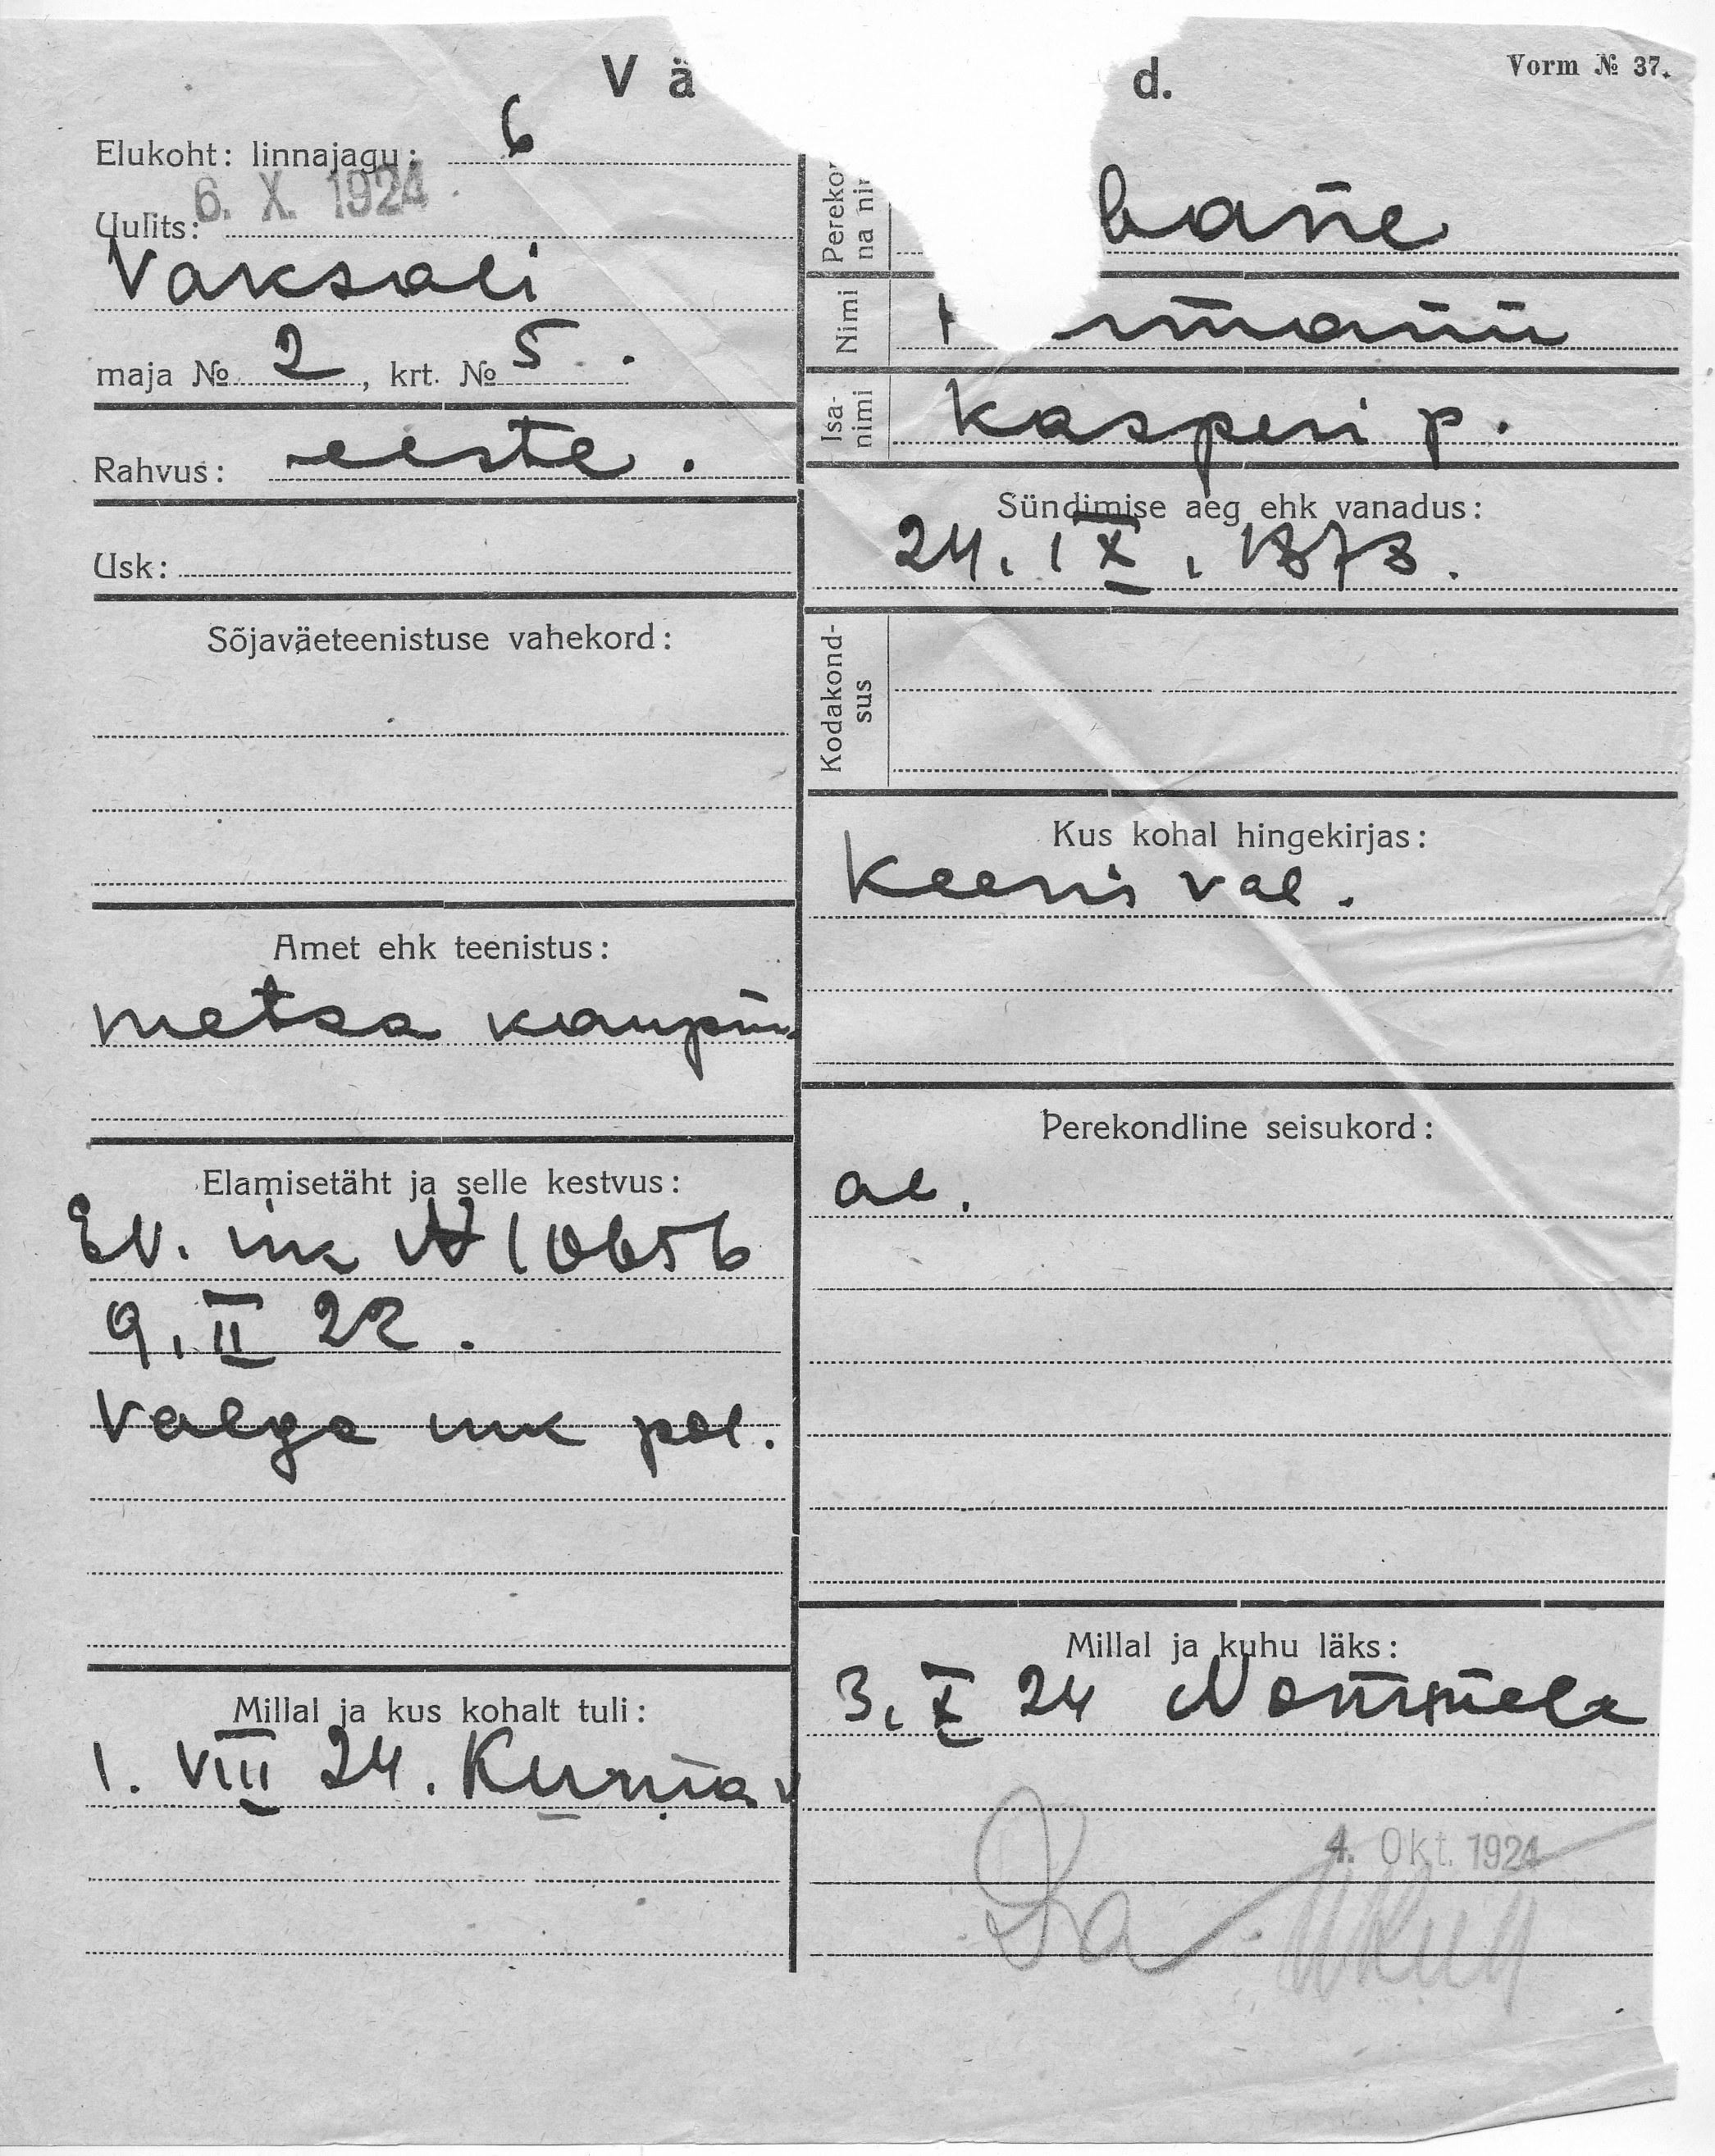 Vä
d.
Vorm № 37.
Elukoht: linnajagu: 6
6. X. 1924
Uulits:
Vaksali
maja № 2, krt. № 5.
Rahvus: eeste.
Usk:
Sõjaväeteenistuse vahekord:
Amet ehk teenistus:
metsa kaupm
Elamisetäht ja selle kestvus:
EV. ik N 10656
9. II 22.
Valga mk pol.
Millal ja kus kohalt tuli:
1. VIII 24.
Pereko
na ni
bane
Nimi
rmann
Isa-
nimi
Kasperi p.
Sündimise aeg ehk vanadus:
24. IX. 1878.
Kodakond-
sus
Kus kohal hingekirjas:
Keeni val.
Perekondline seisukord:
ae.
Millal ja kuhu läks:
3. X 24 Nõmmele
4. Okt. 1924